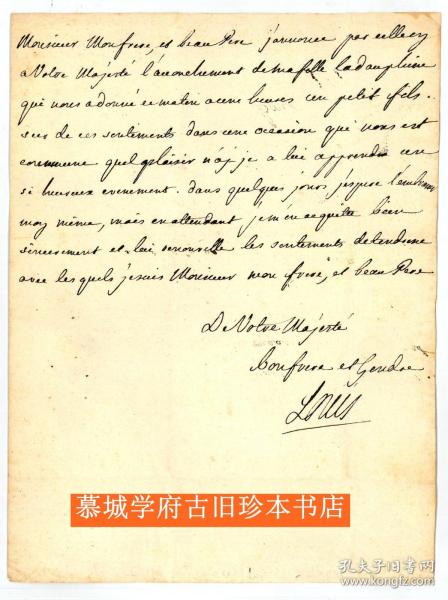 Monsieur Monfrere, et beau Pere j'annonce par celle cy
a Votre Majesté l'acouchement de ma fille la dauphine
qui nous a donné ce matin a onze heures un petit fils.
sur de ces sentiments dans cette occasion qui nous est
commune quel plaisir n'ay je a lui apprendre un
si heureux evenement. dans quelques jours j'espere l'embrasser
moy même, mais en attendant je m'en acquitte bien
sincerement et lui renouvelle les sentiments de tendresse
avec les quels je suis Monsieur mon frere, et beau Pere
De Votre Majesté
Bon frere et Gendre
Louis
慕城学府古旧珍本书店
孔夫子旧书网
kongfz.com